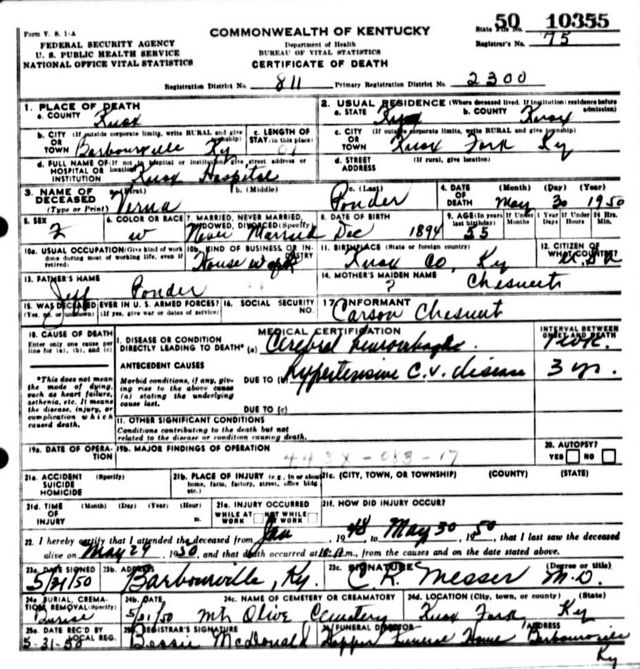 Form V. S. 1-A
FEDERAL SECURITY AGENCY
U. S. PUBLIC HEALTH SERVICE
NATIONAL OFFICE VITAL STATISTICS
COMMONWEALTH OF KENTUCKY
Department of Health
BUREAU OF VITAL STATISTICS
CERTIFICATE OF DEATH
State File No. 50 10355
Registrar's No. 75
Registration District No. 811 Primary Registration District No. 2300
1. PLACE OF DEATH
a. COUNTY Knox
2. USUAL RESIDENCE (Where deceased lived. If institution: residence before admission)
a. STATE Ky b. COUNTY Knox
b. CITY (If outside corporate limits, write RURAL and give township) OR TOWN Barbourville Ky
c. LENGTH OF STAY (in this place)
c. CITY (If outside corporate limits, write RURAL and give township) OR TOWN Knox Fork Ky
d. FULL NAME OF (If not in hospital or institution, give street address or location) HOSPITAL OR INSTITUTION Knox Hospital
d. STREET ADDRESS (If rural, give location)
3. NAME OF DECEASED (Type or Print) a. (First) Verna b. (Middle) c. (Last) Ponder
4. DATE OF DEATH (Month) (Day) (Year) May 30 1950
5. SEX F
6. COLOR OR RACE W
7. MARRIED, NEVER MARRIED, WIDOWED, DIVORCED (Specify) Never Married
8. DATE OF BIRTH Dec 1894
9. AGE (In years last birthday) 55 If Under 1 Year If Under 24 Hrs.
10a. USUAL OCCUPATION (Give kind of work done during most of working life, even if retired)
10b. KIND OF BUSINESS OR INDUSTRY House work
11. BIRTHPLACE (State or foreign country) Knox Co, Ky
12. CITIZEN OF WHAT COUNTRY?
13. FATHER'S NAME Jeff Ponder
14. MOTHER'S MAIDEN NAME ? Chesnut
15. WAS DECEASED EVER IN U. S. ARMED FORCES? (Yes, no, or unknown) (If yes, give war or dates of service)
16. SOCIAL SECURITY NO.
17. INFORMANT Carson Chesnut
18. CAUSE OF DEATH
Enter only one cause per line for (a), (b), and (c)
MEDICAL CERTIFICATION
INTERVAL BETWEEN ONSET AND DEATH
I. DISEASE OR CONDITION DIRECTLY LEADING TO DEATH* (a) Cerebral hemorrhage 1 wk.
*This does not mean the mode of dying, such as heart failure, asthenia, etc. It means the disease, injury, or complication which caused death.
ANTECEDENT CAUSES
Morbid conditions, if any, giving rise to the above cause (a) stating the underlying cause last.
DUE TO (b) Hypertensive C.V. disease 3 yr.
DUE TO (c)
II. OTHER SIGNIFICANT CONDITIONS
Conditions contributing to the death but not related to the disease or condition causing death.
19a. DATE OF OPERATION
19b. MAJOR FINDINGS OF OPERATION
20. AUTOPSY?
YES NO
21a. ACCIDENT SUICIDE HOMICIDE (Specify)
21b. PLACE OF INJURY (e.g., in or about home, farm, factory, street, office bldg., etc.)
21c. (CITY, TOWN, OR TOWNSHIP) (COUNTY) (STATE)
21d. TIME OF INJURY (Month) (Day) (Year) (Hour)
21e. INJURY OCCURRED WHILE AT WORK NOT WHILE AT WORK
21f. HOW DID INJURY OCCUR?
22. I hereby certify that I attended the deceased from Jan, 1948 to May 30, 1950, that I last saw the deceased
alive on May 29, 1950, and that death occurred at m., from the causes and on the date stated above.
23a. DATE SIGNED 5/31/50
23b. ADDRESS Barbourville, Ky.
23c. SIGNATURE (Degree or title) C. R. Messer M.D.
24a. BURIAL, CREMATION, REMOVAL (Specify)
24b. DATE 5/31/50
24c. NAME OF CEMETERY OR CREMATORY Mt Olive Cemetery
24d. LOCATION (City, town, or county) (State) Knox Fork Ky
25a. DATE REC'D BY LOCAL REG. 5-31-50
25b. REGISTRAR'S SIGNATURE Bessie McDonald
FUNERAL DIRECTOR ADDRESS
Hopper Funeral Home Barbourville Ky